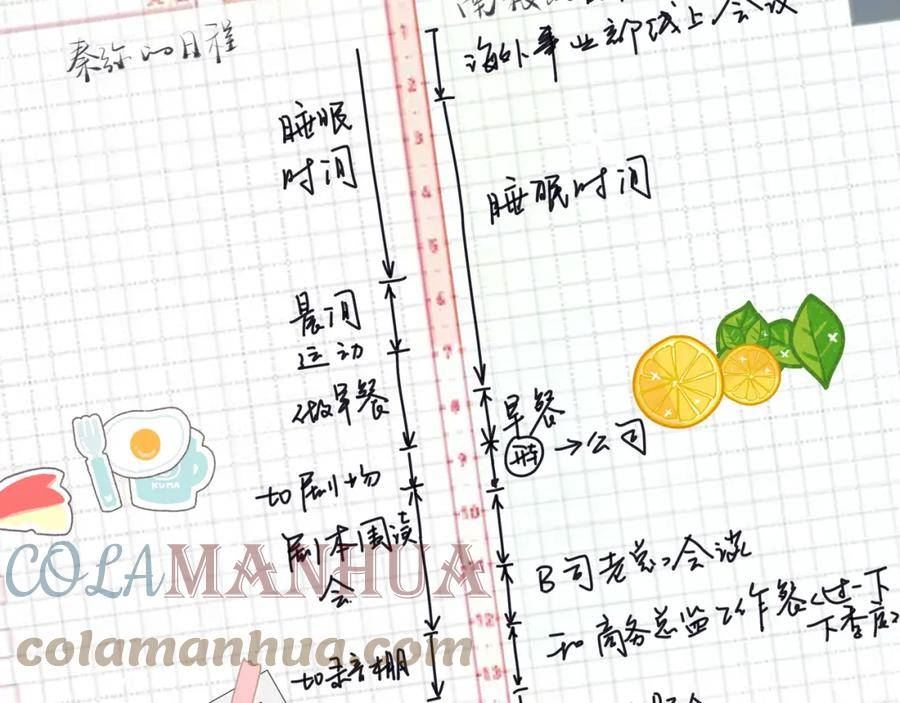 秦弥的日程
海外事业部线上会议
睡眠
时间
睡眠时间
晨间
运动
做早餐
早餐
→公司
to剧场
剧本围读
会
B司老总会谈
和商务总监工作餐(过一下
to录音棚
1
2
3
4
5
6
7
8
9
10
11
12
13
KUMA
COLAMANHUA
colamanhua.com